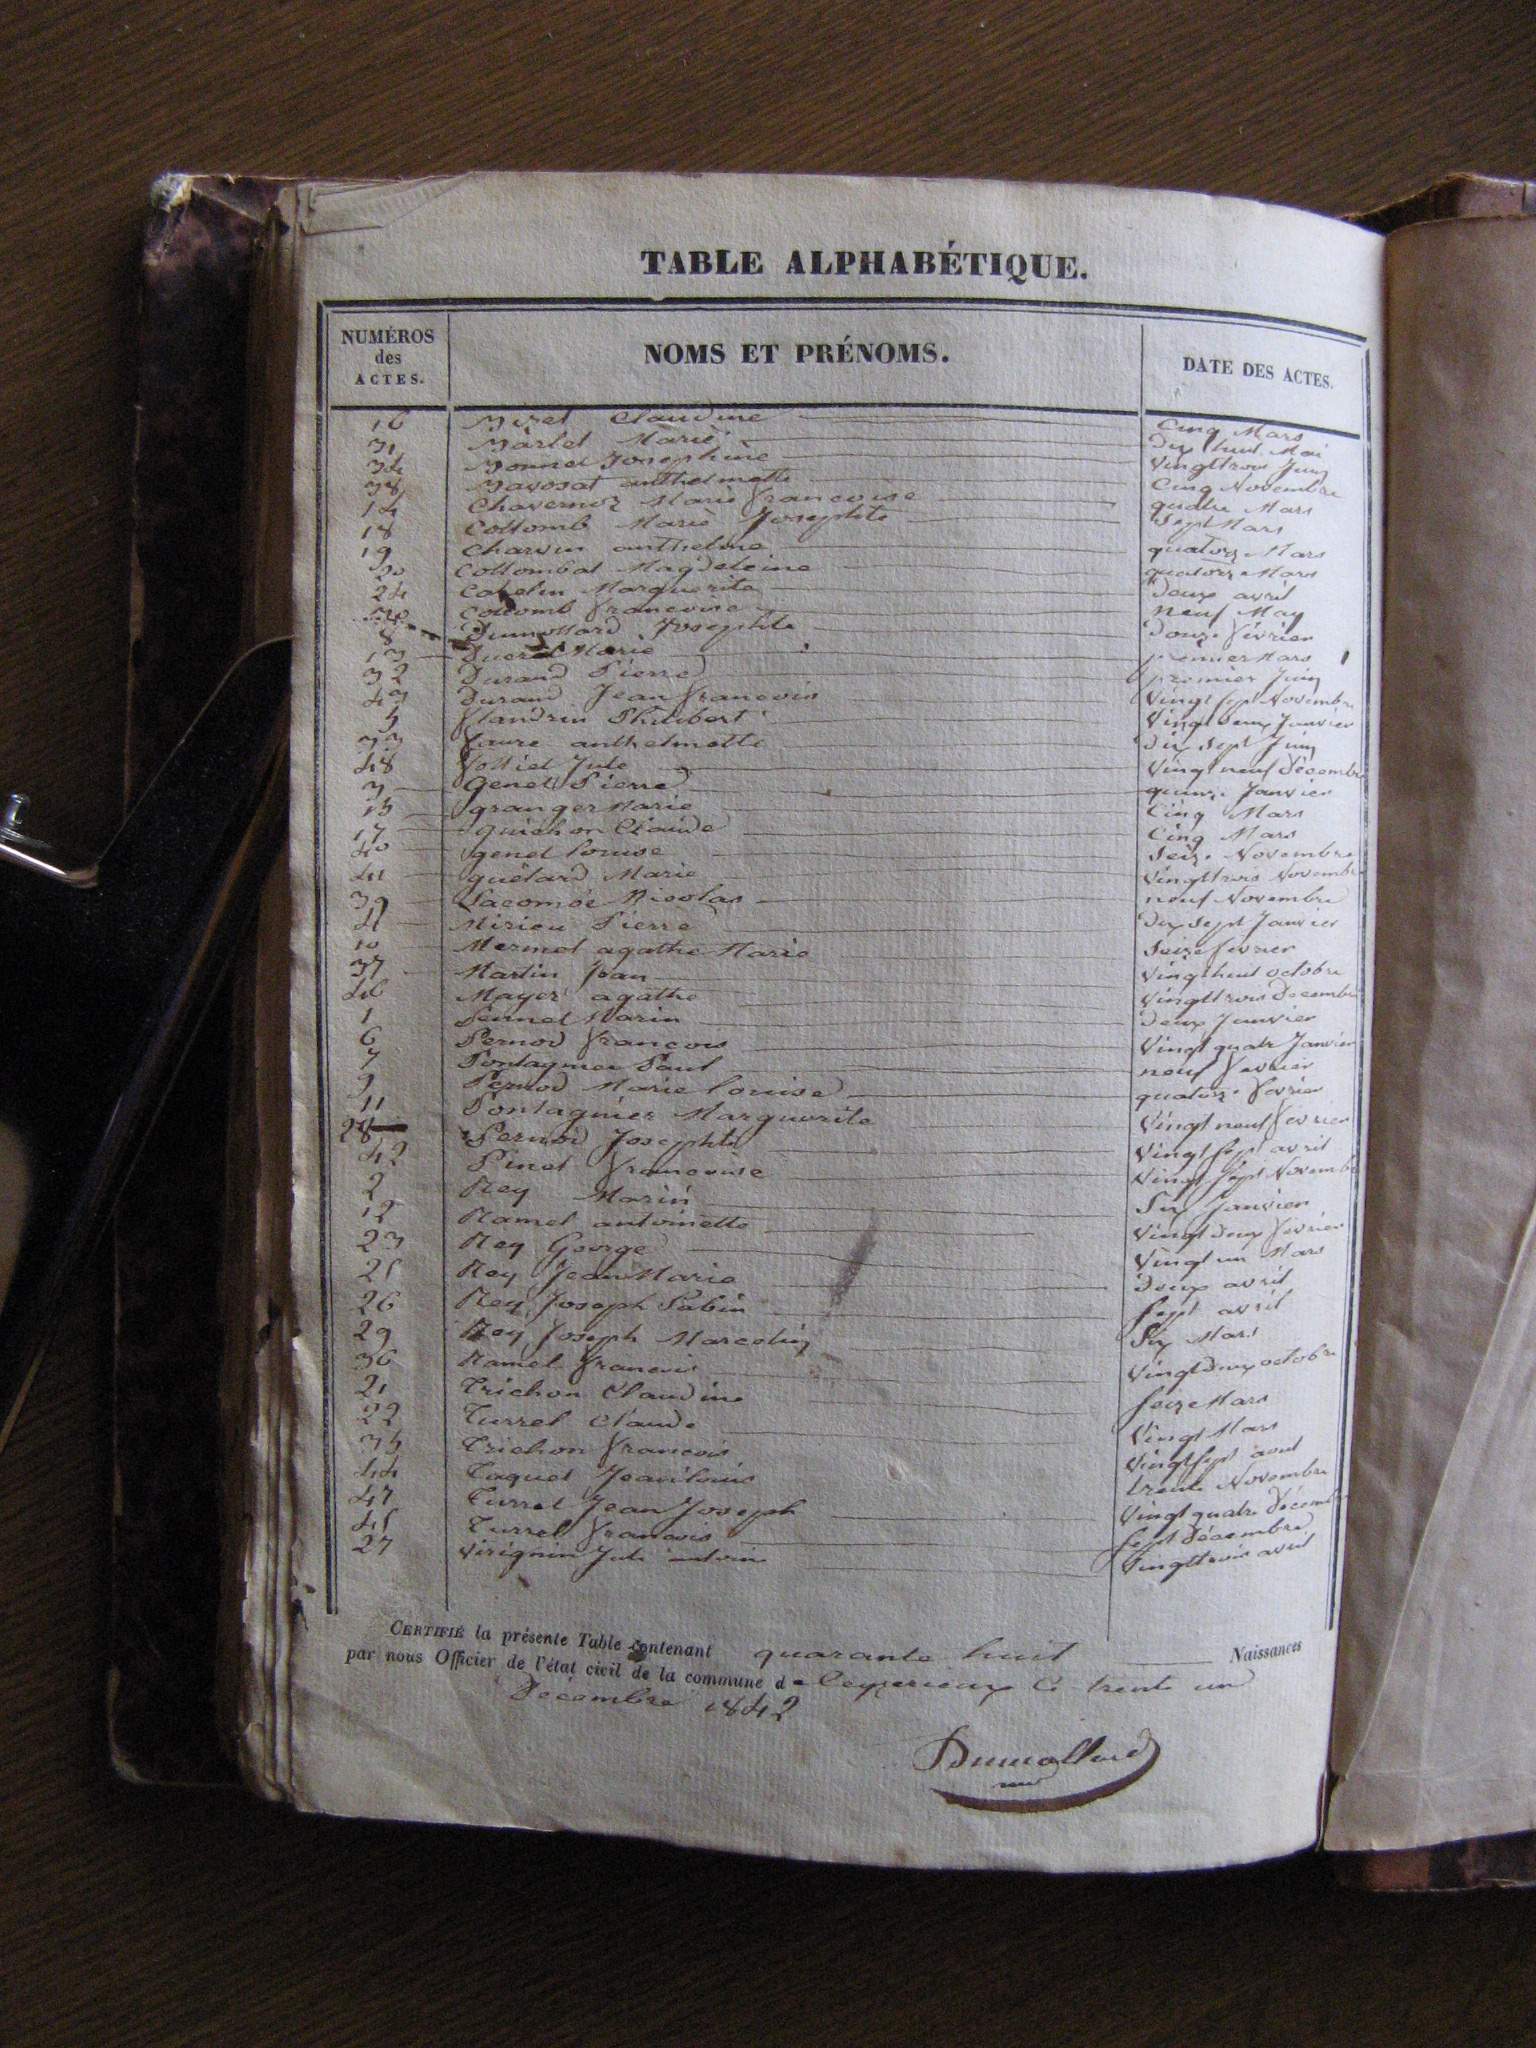 TABLE ALPHABÉTIQUE.
NUMÉROS des ACTES. NOMS ET PRÉNOMS. DATE DES ACTES.
16 Claudine Cinq Mars
31 Barlet Marie Dix huit Mai
34 Bonnet Josephine Vingttrois Juin
38 Bavosat anthelmette Cinq Novembre
14 Chavernoz Marie francoise quatre Mars
18 Collomb Marie Josephte Sept Mars
19 Charvin anthelme quatorze Mars
20 Collombat Magdeleine quatorze Mars
24 Marguerite Deux avril
30 Collomb francoise neuf May
8 Dumollard Josephte Douze fevrier
13 Marie premier Mars
32 Durand Pierre premier Juin
43 Durand Jean francois Vingt sept Novembre
5 flandrin Philibert Vingt deux Janvier
33 faure anthelmette Dix sept Juin
48 Jule Vingt neuf Décembre
3 Genet Pierre quinze Janvier
15 granger Marie Cinq Mars
17 guichon Claude Cinq Mars
40 genet louise Seize Novembre
41 guétard Marie Vingttrois Novembre
39 Lacombe Nicolas neuf Novembre
4 Pierre Dix sept Janvier
10 Mermet agathe Marie Seize fevrier
37 Martin Jean Vingthuit octobre
46 Mayer agathe Vingttrois Decembre
1 Marin Deux Janvier
6 Pernod francois Vingt quatre Janvier
7 Pontagnier Paul neuf fevrier
9 Pernod Marie louise quatorze fevrier
11 Pontagnier Marguerite Vingt neuf fevrier
28 Pernod Josephte Vingt sept avril
42 Pinet francoise Vingt sept Novembre
2 Rey Marin Six Janvier
12 Ramel antoinette Vingt deux fevrier
23 Rey George Vingt un Mars
25 Rey Jean Marie Deux avril
26 Rey Joseph Sabin Sept avril
29 Rey Joseph Marcelin Six Mars
36 Ramel francois Vingtdeux octobre
21 Trichon Claudine Seize Mars
22 Turrel Claude Vingt Mars
35 Trichon francois Vingt sept aout
44 Taquet Jean louis trente Novembre
47 Turrel Jean Joseph Vingt quatre Décembre
45 Turrel francois Sept Décembre
27 Virignin Vingttrois avril
CERTIFIÉ la présente Table contenant quarante huit Naissances
par nous Officier de l'état civil de la commune de Ceyzerieux le trente un
Décembre 1842
Dumollard